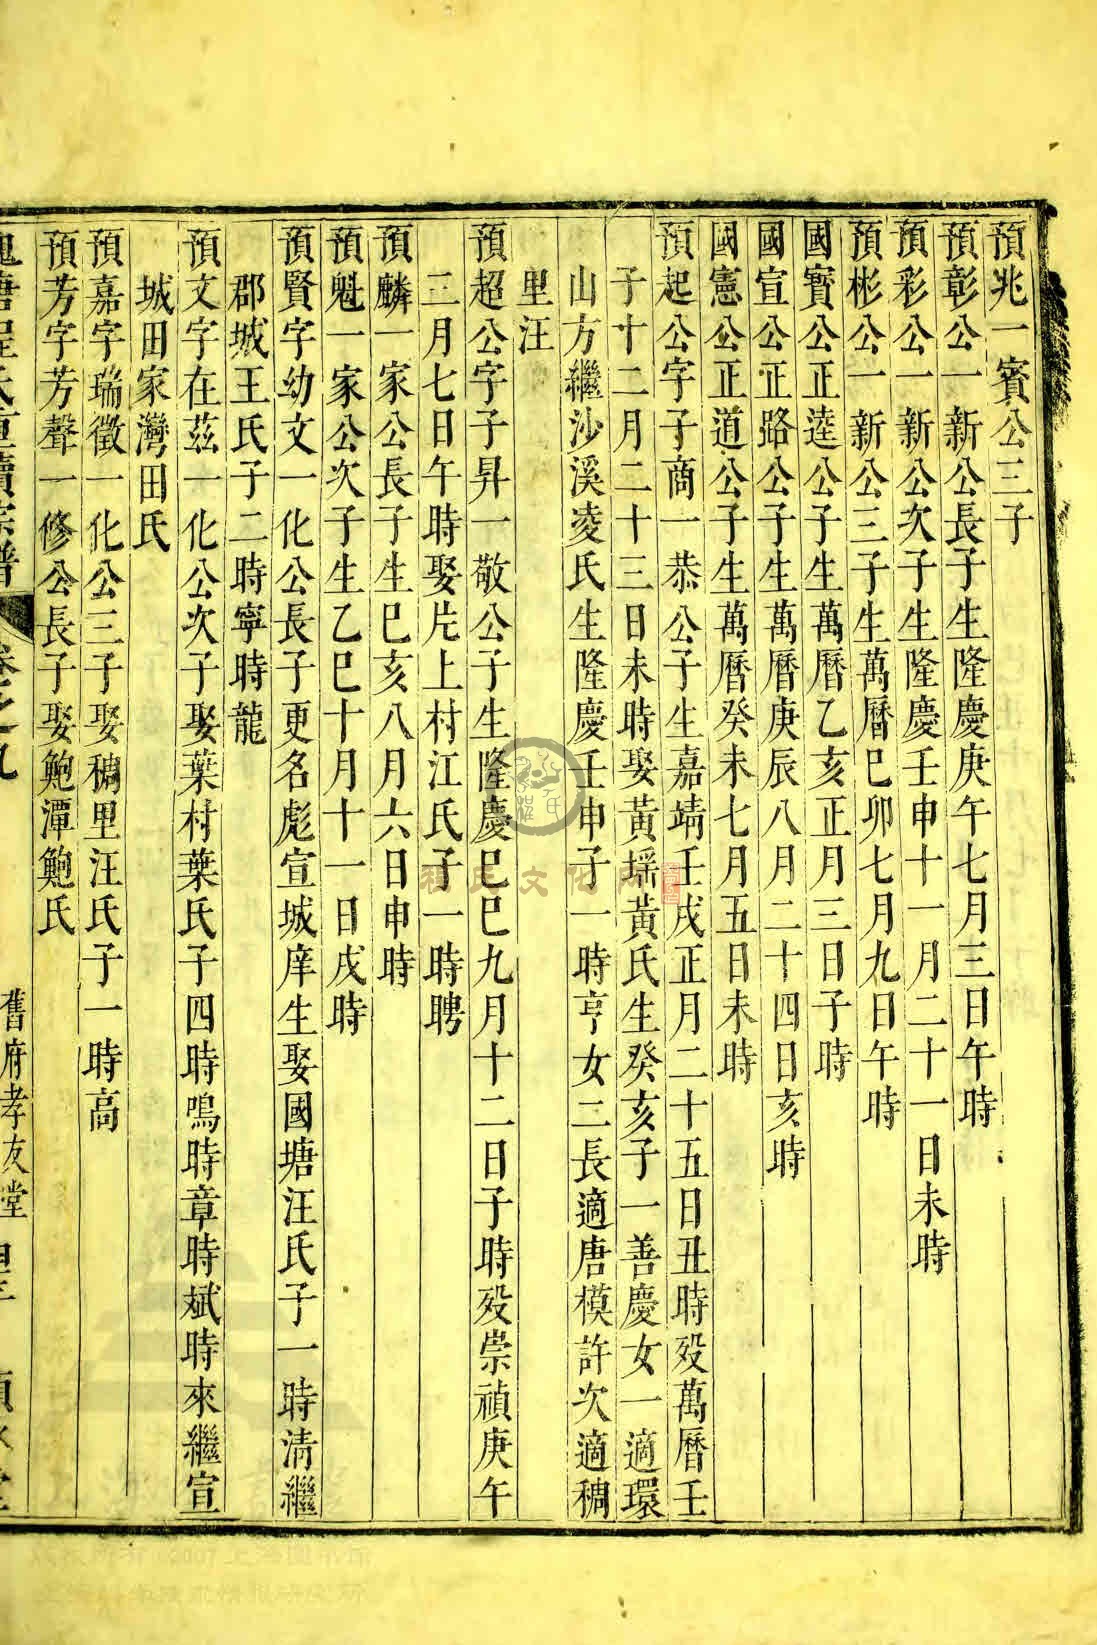 預兆一賓公三子
預彰公一新公長子生隆慶庚午七月三日午時
預彩公一新公次子生隆慶壬申十一月二十一日未時
預彬公一新公三子生萬曆己卯七月九日午時
國寳公正逵公子生萬曆乙亥正月三日子時
國宣公正路公子生萬曆庚辰八月二十四日亥時
國憲公正道公子生萬曆癸未七月五日未時
預起公字子商一恭公子生嘉靖壬戌正月二十五日丑時殁萬曆壬
子十二月二十三日未時娶黃墲黃氏生癸亥子一善慶女一適環
山方繼沙溪凌氏生隆慶壬申子一時亨女二長適唐模許次適稠
里汪
預超公字子昇一敬公子生隆慶己巳九月十二日子時殁崇禎庚午
三月七日午時娶片上村江氏子一時聘
預麟一家公長子生巳亥八月六日申時
預魁一家公次子生乙巳十月十一日戌時
預賢字幼文一化公長子更名彪宣城庠生娶國塘汪氏子一時清繼
郡城王氏子二時寧時龍
預文字在茲一化公次子娶葉村葉氏子四時鳴時章時斌時來繼宣
城田家灣田氏
預嘉字瑞徵一化公三子娶稠里汪氏子一時高
預芳字芳聲一修公長子娶鮑潭鮑氏
舊府孝友堂
程氏文化网